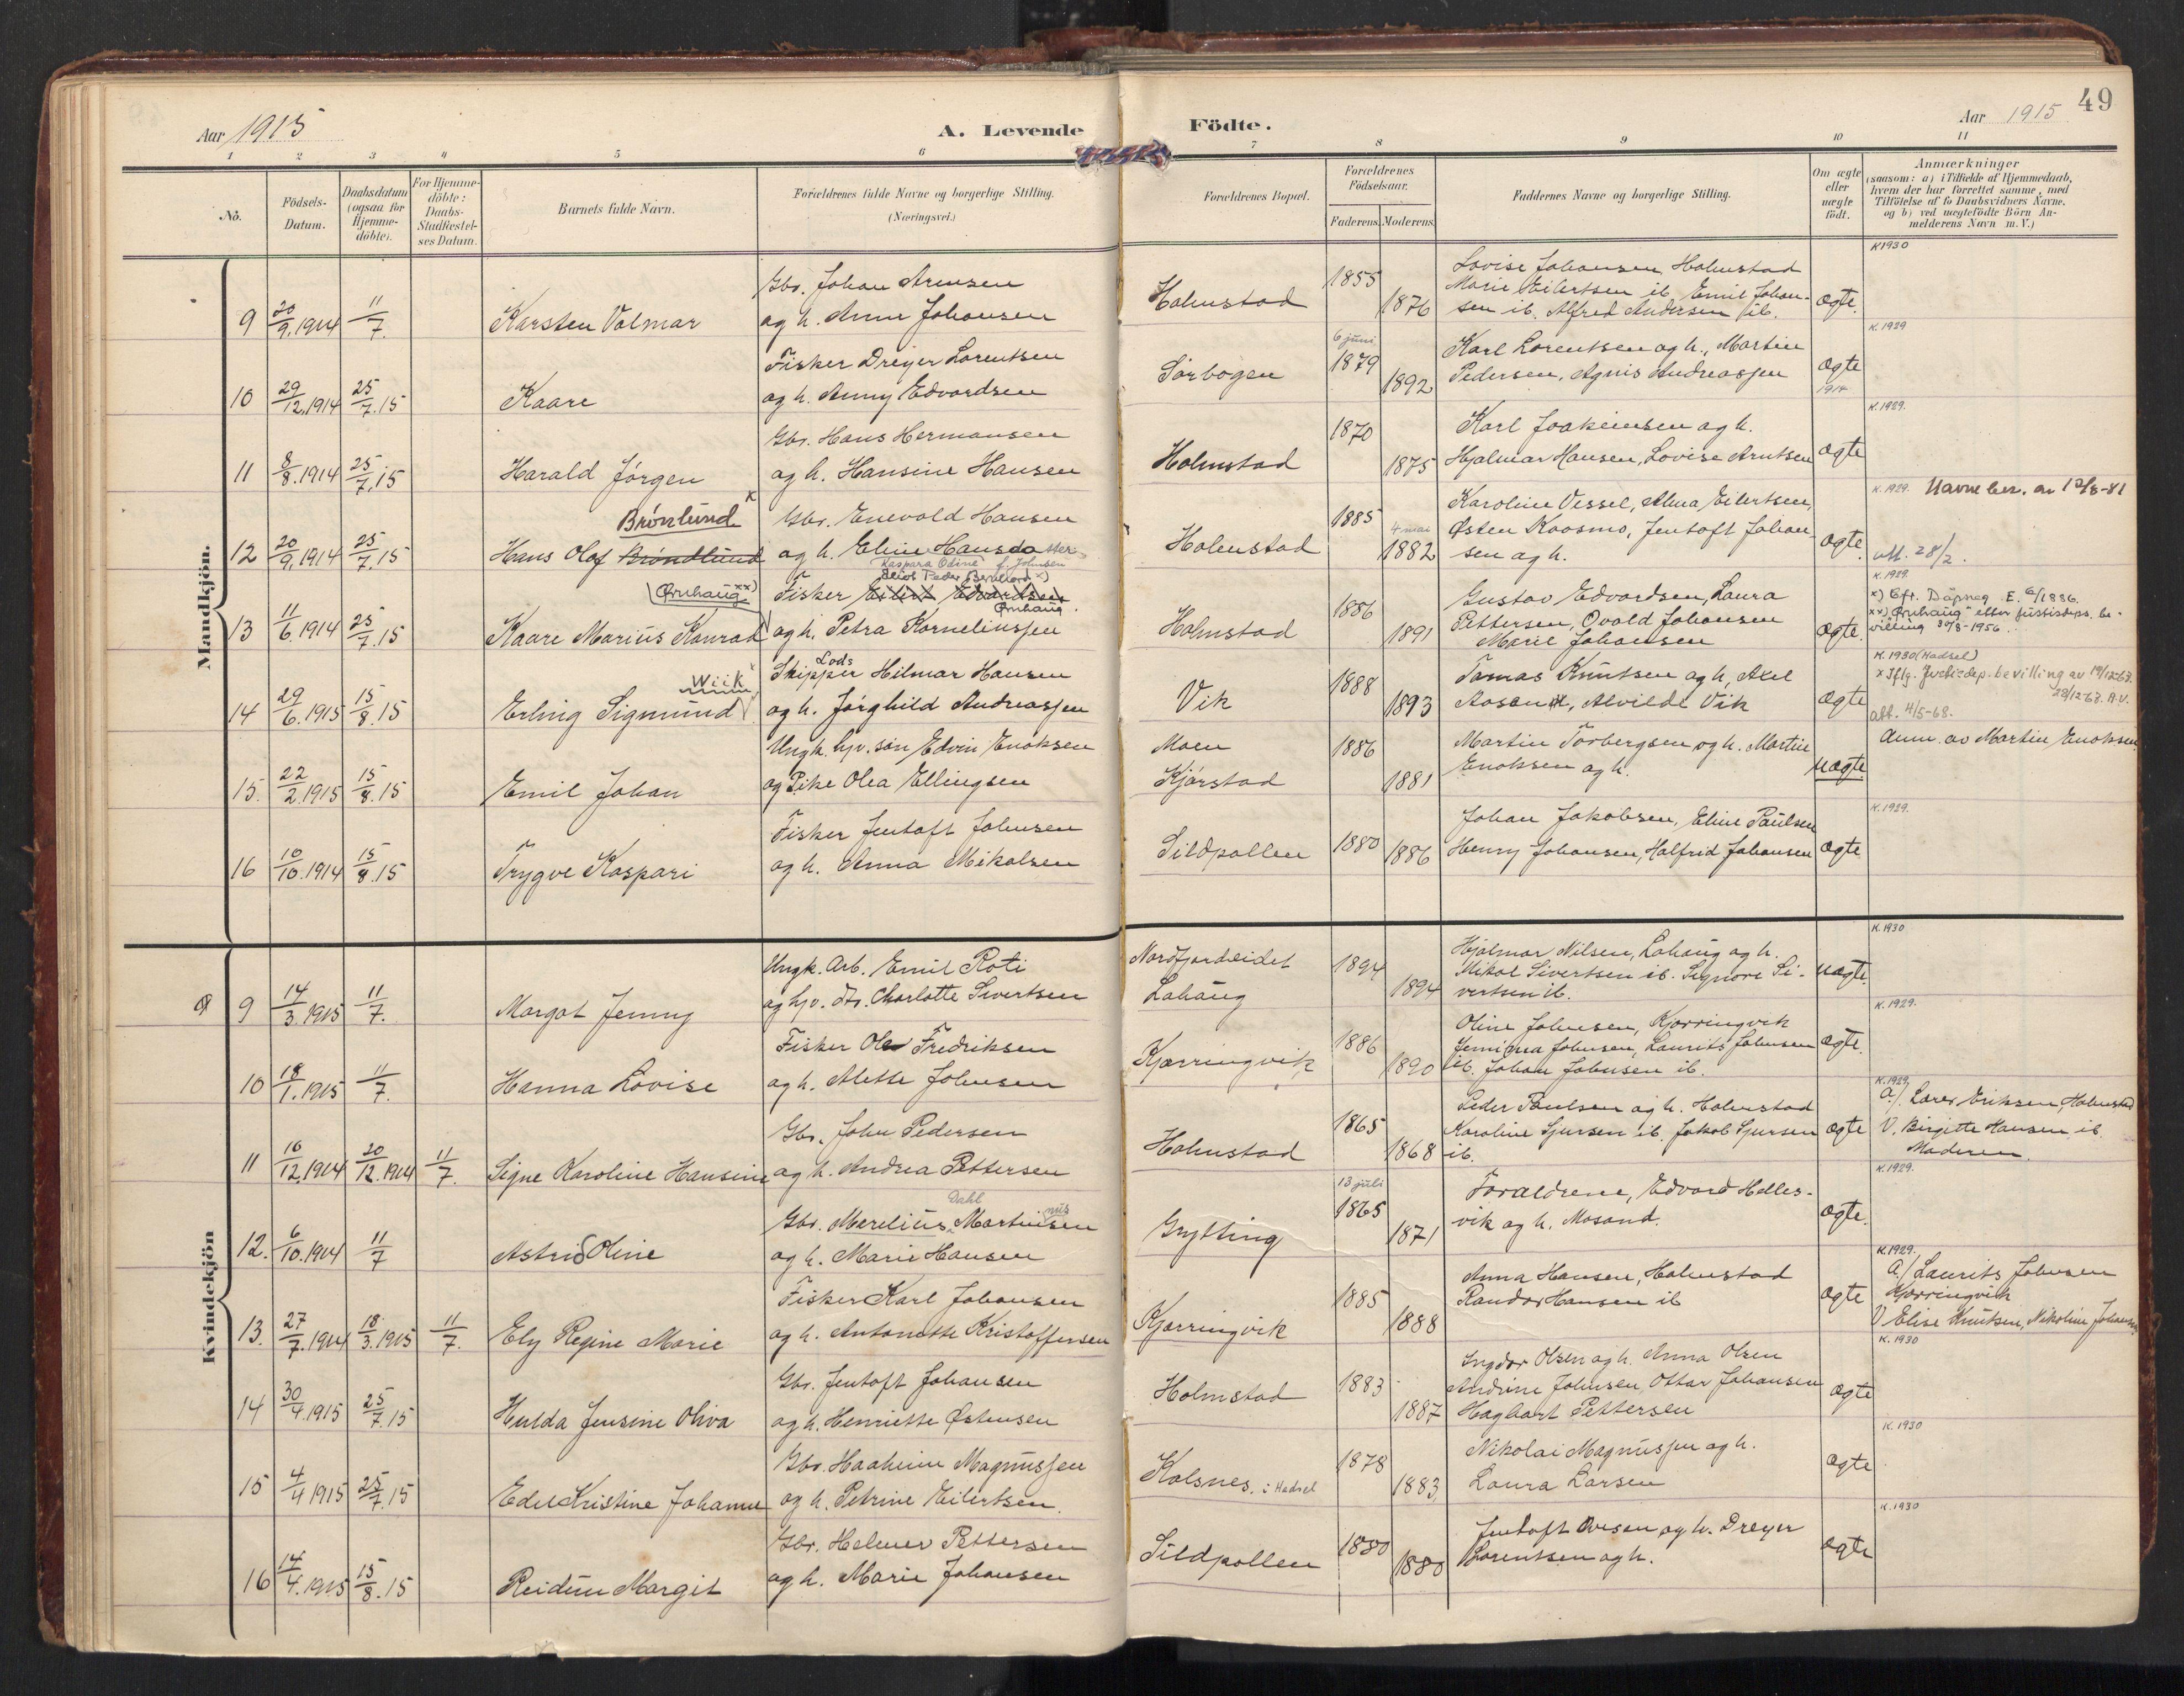 49
Aar 1915
A. Levende
Födte.
Aar 1915
1 2 3 4 5 6 7 8 9 10 11
No.
Födsels-
Datum.
Daabsdatum
(ogsaa for
Hjemme-
döbte).
For Hjemme-
döbte:
Daabs-
Stadfestel-
ses Datum.
Barnets fulde Navn.
Forældrenes fulde Navne og borgerlige Stilling.
(Næringsvei.)
Forældrenes Bopæl.
Forældrenes
Födselsaar.
Faderens Moderens
Faddernes Navne og borgerlige Stilling.
Om ægte
eller
uægte
födt.
Anmærkninger
(saasom: a) i Tilfælde af Hjemmedaab,
hvem der har forrettet samme, med
Tilföielse af to Daabsvidners Navne,
og b) ved uægtefödte Börn An-
melderens Navn m. V.)
Mandkjön.
9 20/9.1914 11/7. Karsten Valmar
Gbr. Johan Arnusen
og h. Anna Johansen
Holmstad 1855 1876
Lovise Johansen Holmstad
Marie Eilertsen ib. Emil Johan-
sen ib. Alfred Andersen ib.
ægte.
K1930
10 29/12.1914 25/7.15 Kaare
Fisker Dreyer Lorentsen
og h. Anny Edvardsen
Sørbogen 6 juni 1879 1892
Karl Lorentsen og h., Martin
Pedersen, Agnis Andreassen
ægte
1914
K.1929
11 8/8.1914 25/7.15 Harald Jørgen
Gbr. Hans Hermansen
og h. Hansine Hansen
Holmstad 1870 1875
Karl Joakimsen og h.
Hjalmar Hansen, Lovise Arntsen
ægte
K.1929.
12 20/9.1914 25/7.15
Brønlund x
Hans Olaf Brøndlund
Gbr. Enevold Hansen
og h. Eline Hansdatter
Kaspara Odine f. Johnsen
Holmstad 1885 4 mai 1882
Karoline Vessel, Alma Eilertsen,
Østen Koosmo, Jentoft Johan-
sen og h.
ægte.
K.1929. Navnebev. av 12/8-81
att. 28/2.
13 11/6.1914 25/7.15
Ørnhaug xx)
Kaare Marius Konrad
Eliot Peder Bernhard x)
Fisker Eilert Edvardsen
Ørnhaug.
og h. Petra Korneliussen
Holmstad 1886 1891
Gustav Edvardsen, Laura
Pettersen, Ovald Johansen
Marie Johansen
ægte.
K.1929.
x) Eft. Dåpsreg E. 6/1886.
xx) "Ørnhaug" etter justisdeps. be-
villing 30/8-1956.
14 29/6.1915 15/8.15
Wiik x
Erling Sigmund
Lods
Skipper Hilmar Hansen
og h. Jørghild Andreassen
Vik 1888 1893
Tomas Knutsen og h, Axel
Aasand, Alvilde Vik
ægte
K.1930 (Hadsel)
x Iflg. Justisdep. bevilling av 19/12 63.
28/12 63. A.V.
att. 4/5-68.
15. 22/2.1915 15/8.15 Emil Johan
Ungk. hjv. søn Edvin Enoksen
og Pike Olea Ellingsen
Moen
Kjørstad 1886 1881
Martin Torbergsen og h. Martin
Enoksen og h.
uægte
Anm. av Martin Enoksen
16 10/10.1914 15/8.15 Trygve Kaspari
Fisker Jentoft Johnsen
og h. Anna Mikalsen
Sildpollen 1880 1886
Johan Jakobsen, Eline Paulsen
Henry Johansen, Halfrid Johansen
ægte
K.1929.
Kvindekjön
9 14/3.1915 11/7. Margot Jenny
Ungk. Arb. Emil Roti
og hjv. dtr. Charlotte Sivertsen
Nordfjordeidet
Lahaug 1894 1894
Hjalmar Nilsen, Lahaug og h.
Mikal Sivertsen ib. Signore Si-
vertsen ib.
uægte.
K.1930
10 18/1.1915 11/7. Hanna Lovise
Fisker Ole Fredriksen
og h. Alette Johnsen
Kjørringvik 1886 1890
Oline Johnsen, Kjørringvik
Jemima Johnsen, Laurits Johnsen
ib. Johan Johnsen ib.
ægte.
K.1929.
11 16/12.1914 20/12.1914 11/7. Signe Karoline Hansine
Gbr. John Pedersen
og h. Andrea Pettersen
Holmstad 1865 1868
Peder Paulsen og h. Holmstad
Karoline Sjursen ib. Jakob Sjursen
ib.
ægte
K.1929
A./ Lærer Eriksen, Holmstad
V. Birgitte Hansen ib.
Moderen.
12. 6/10.1914 11/7 Astrid Oline
Dahl
Gbr. Merelius Martinsen
nius
og h. Marie Hansen
Grytting 13 juli 1865 1871
Forældrene, Edvard Helles-
vik og h. Mosand.
ægte.
K.1929.
13. 27/7.1914 18/3.1915 11/7. Ely Regine Marie
Fisker Karl Johansen
og h. Antonette Kristoffersen
Kjørringvik 1885 1888
Anna Hansen, Holmstad
Randor Hansen ib
ægte
K.1929.
A./ Laurits Johnsen
Kjørringvik
V Elise Knutsen, Nikoline Johansen
14 30/4.1915 25/7.15 Hulda Jensine Oliva
Gbr. Jentoft Johansen
og h. Henriette Østensen
Holmstad 1883 1887
Ingvar Olsen og h. Anna Olsen
Andrine Johnsen, Ottar Johansen
Hagbart Pettersen
ægte
K.1930
15 4/4 1915 25/7.15 Edel Kristine Johanne
Gbr. Haakeim Magnussen
og h. Petrine Eilertsen.
Kalsnes. i Hadsel 1878 1883
Nikolai Magnussen og h.
Laura Larsen
ægte
K.1930
16 14/4.1915 15/8.15 Reidun Margit
Gbr. Helmer Pettersen
og h. Marie Johansen
Sildpollen 1880 1880
Jentoft Ovesen og h. Dreyer
Lorentsen og h.
ægte
K.1930